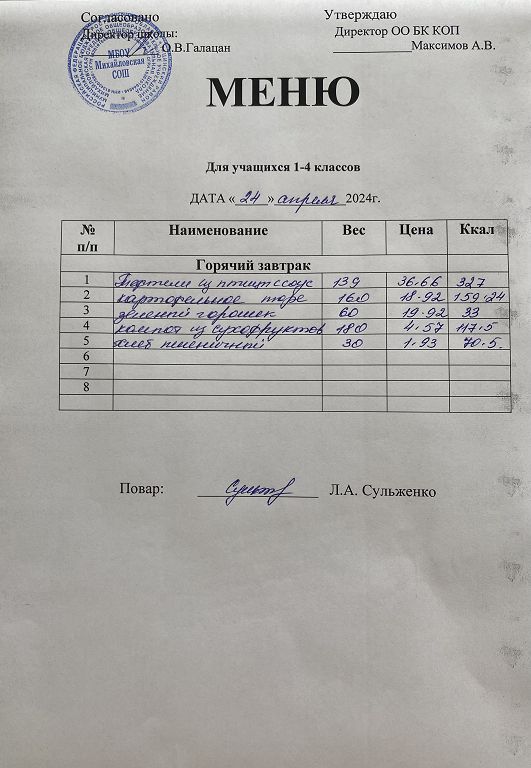 Согласовано Утверждаю
Директор школы: Директор ОО БК КОП
О.В.Галацан Максимов А.В.
МБОУ
Михайловская
СОШ
МЕНЮ
Для учащихся 1-4 классов
ДАТА «24» апреля 2024г.
№ п/п Наименование Вес Цена Ккал
Горячий завтрак
1 из птицы соус 139 36.66 327
2 картофельное пюре 160 18.92 159.24
3 зеленый горошек 60 19.92 33
4 компот из сухофруктов 180 4.57 117.5
5 хлеб пшеничный 30 1.93 70.5
6
7
8
Повар: Л.А. Сульженко